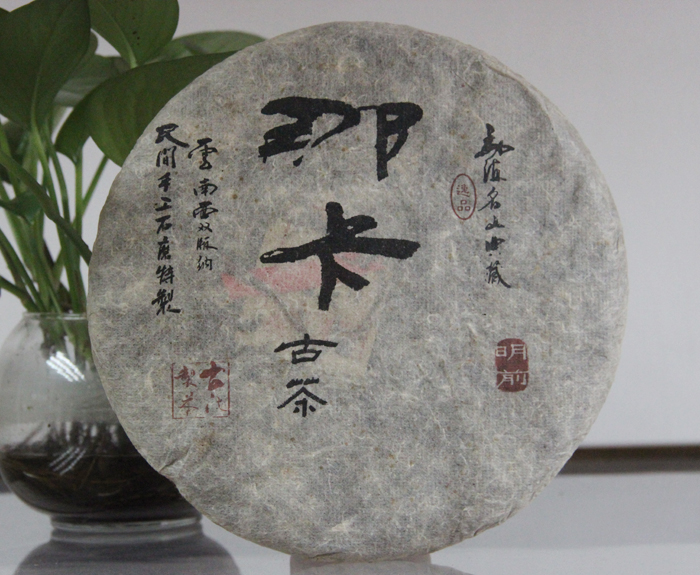 勐海名山典藏
逸品
明前
那卡
古茶
雲南西双版纳
民間手工石磨特製
古法
製茶